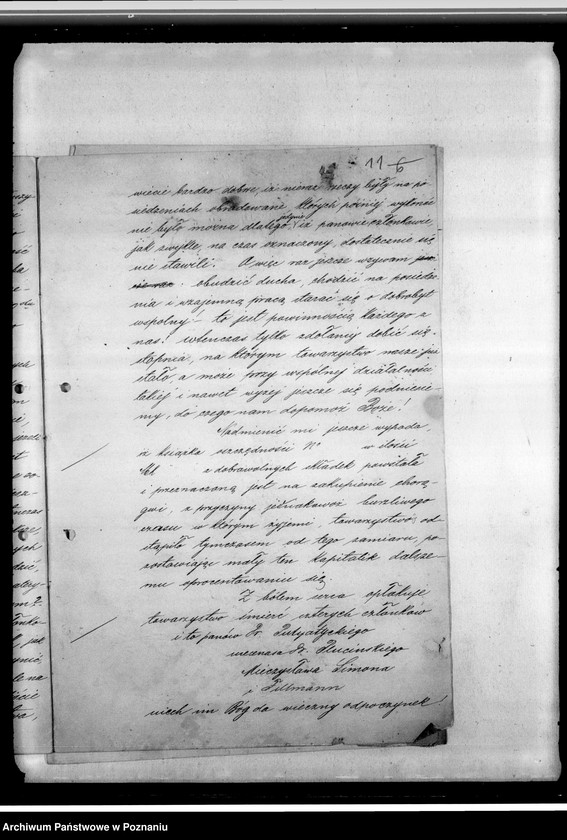 11 6
wiecie bardzo dobrze, iż nieraz rzeczy były na po
siedzeniach obradowane których później wykonać
nie było można dlatego jedynie, iż panowie członkowie,
jak zwykle, na czas oznaczony, dostatecznie się
nie stawili. A więc raz jeszcze wzywam
obudzić ducha, chodzić na posiedze
nia i wzajemną pracą starać się o dobrobyt
wspólny! – to jest powinnością każdego z
nas! wtenczas tylko zdołamy dobić się
stopnia, na którym towarzystwo nasze już
stało, a może przy wspólnej działalności
takiej i nawet wyżej jeszcze się podniesie
my, do czego nam dopomóż Boże!
Nadmienić mi jeszcze wypada,
iż książka oszczędności N° w ilości
Mk z dobrowolnych składek powstała
i przeznaczoną jest na zakupienie chorą
gwi, z przyczyny jednakowoż burzliwego
czasu w którym żyjemy, towarzystwo od
stąpiło tymczasem od tego zamiaru, po
zostawiając mały ten kapitalik dalsze
mu oprocentowaniu się.
Z bólem serca opłakuje
towarzystwo śmierć czterych członków
i to panów Dr.
mecenasa Dr.
Mieczysława Simona
i Tillmann
niech im Bóg da wieczny odpoczynek!
Archiwum Państwowe w Poznaniu